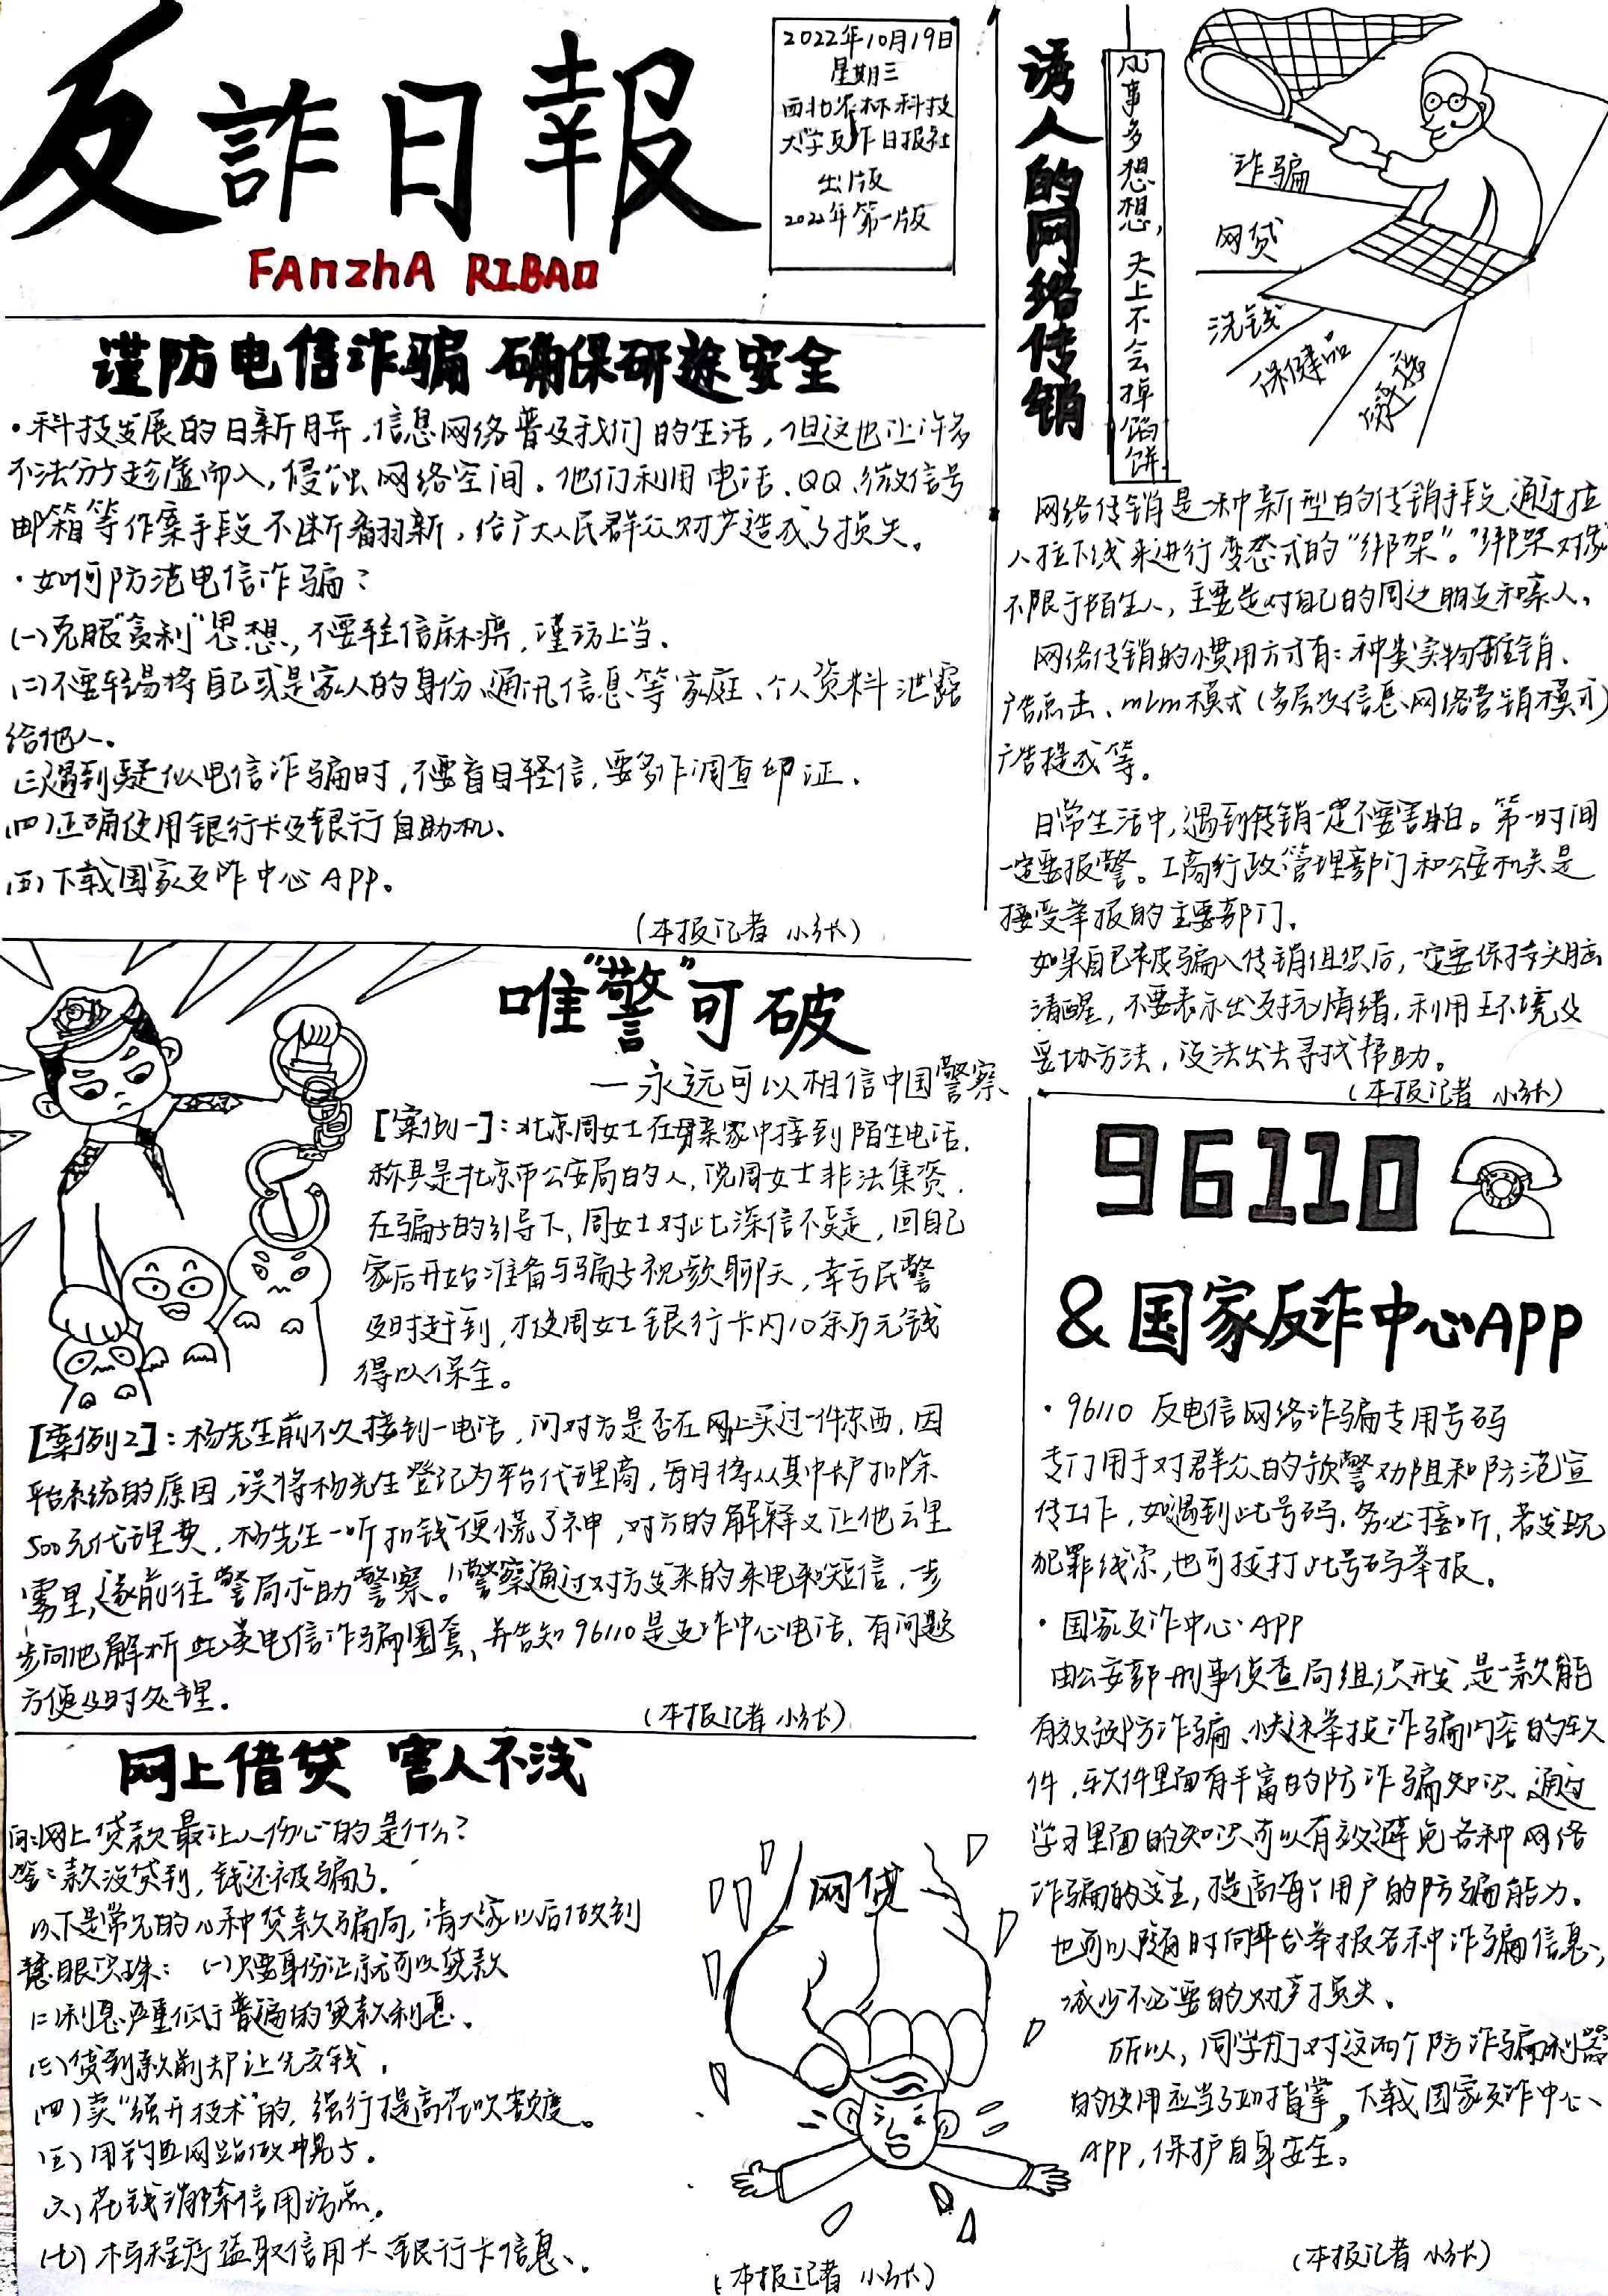 反詐日報
FAnzhA RIBAO
2022年10月19日
星期三
西北农林科技
大学反诈日报社
出版
2022年第一版
谨防电信诈骗 确保研途安全
·科技发展的日新月异,信息网络普及我们的生活,但这也让许多
不法分子趁虚而入,侵蚀网络空间。他们利用电话、QQ、微信号
邮箱等作案手段不断翻新,给广大人民群众财产造成了损失。
·如何防范电信诈骗?
(一)克服“贪利”思想,不要轻信麻痹,谨防上当、
(二)不要轻易将自己或是家人的身份、通讯信息等家庭、个人资料泄露
给他人。
(三)遇到疑似电信诈骗时,不要盲目轻信,要多作调查印证、
(四)正确使用银行卡及银行自助机、
(五)下载国家反诈中心APP。
(本报记者 小张)
唯“警”可破
—永远可以相信中国警察
[案例一]:北京周女士在母亲家中接到陌生电话,
称其是北京市公安局的人,说周女士非法集资,
在骗子的引导下,周女士对此深信不疑,回自己
家后开始准备与骗子视频聊天,幸亏民警
及时赶到,才使周女士银行卡内10余万元钱
得以保全。
[案例2]:杨先生前不久接到一电话,问对方是否在网上买过一件东西,因
平台系统的原因,误将杨先生登记为平台代理商,每月将从其中扣除
500元代理费,杨先生一听扣钱便慌了神,对方的解释又让他云里
雾里,遂前往警局求助警察。警察通过对方发来的来电和短信,步
步向他解析此类电信诈骗圈套、并告知96110是反诈中心电话,有问题
方便及时处理。
(本报记者 小张)
网上借贷 害人不浅
问:网上贷款最让人伤心的是什么?
答:款没贷到,钱还被骗了.
以下是常见的几种贷款骗局,请大家以后做到
慧眼识珠: (一)只要身份证就可以贷款
(二)利息严重低于普遍的贷款利息、
(三)贷到款前却让先交钱.
(四)卖“强开技术”的,强行提高花呗额度。
(五)用钓鱼网站做幌子。
(六)花钱消除信用污点。
(七)木马程序盗取信用卡、银行卡信息、
网贷
(本报记者 小张)
诱人的网络传销
凡事多想想,天上不会掉馅饼
诈骗
网贷
洗钱
保健品
网络传销是一种新型的传销手段,通过拉
人拉下线来进行变态式的“绑架”。“绑架”对象
不限于陌生人,主要是对自己的周边朋友和亲人。
网络传销的惯用方式有:种类实物推销、
广告点击、mlm模式(多层次信息网络营销模式)
广告提成等。
日常生活中,遇到传销一定不要害怕。第一时间
一定要报警。工商行政管理部门和公安机关是
接受举报的主要部门、
如果自己被骗入传销组织后,一定要保持头脑
清醒,不要表示出对抗情绪,利用环境及
妥协方法,设法出去寻找帮助。
(本报记者 小张)
96110
&国家反诈中心APP
·96110 反电信网络诈骗专用号码
专门用于对群众的预警劝阻和防范宣
传工作,如遇到此号码,务必接听,若发现
犯罪线索,也可拨打此号码举报。
·国家反诈中心APP
由公安部刑事侦查局组织开发,是一款能
有效预防诈骗、快速举报诈骗内容的软
件,软件里面有丰富的防诈骗知识,通过
学习里面的知识可以有效避免各种网络
诈骗的发生,提高每个用户的防骗能力。
也可以随时向平台举报各种诈骗信息,
减少不必要的财产损失、
所以,同学们对这两个防诈骗利器
的使用应当了如指掌,下载国家反诈中心
APP,保护自身安全。
(本报记者 小张)